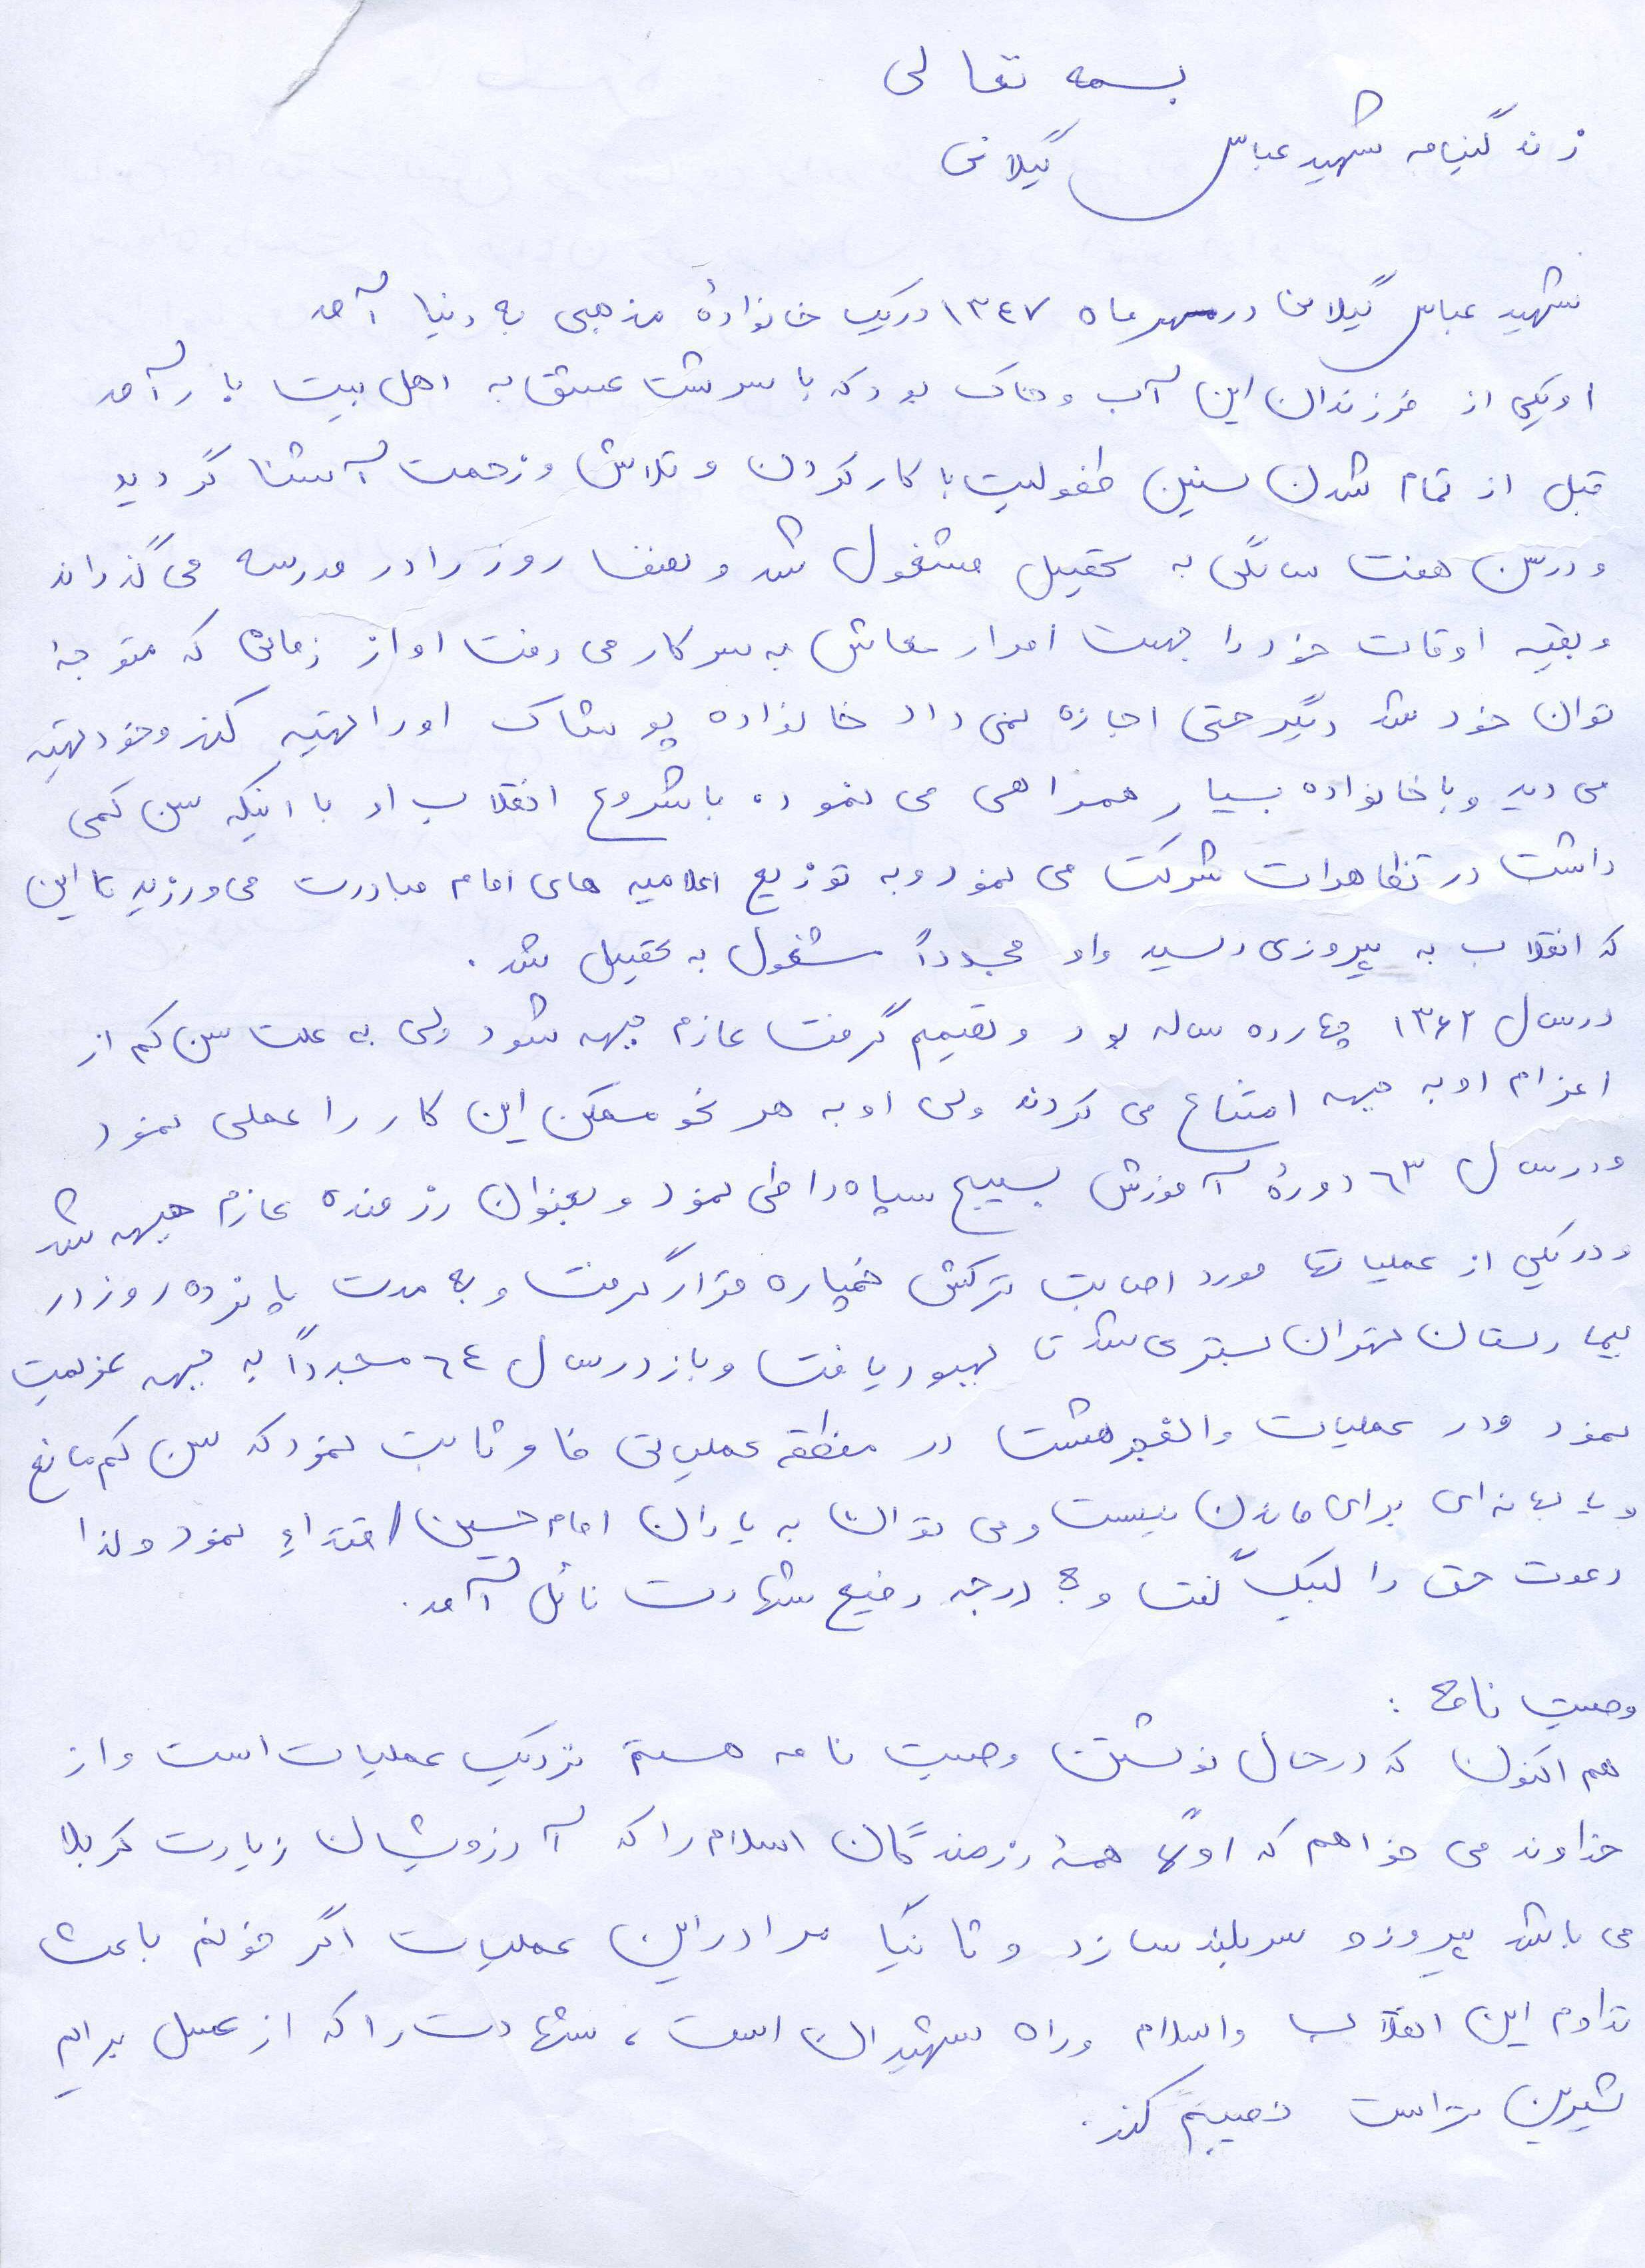 بسمه تعالی
زندگینامه شهید عباس گیلانی
شهید عباس گیلانی در مهر ماه ۱۳٤۷ در یک خانوادهٔ مذهبی به دنیا آمد
او یکی از فرزندان این آب و خاک بود که با سرشت عشق به اهل بیت بار آمد
قبل از تمام شدن سنین طفولیت با کار کردن و تلاش و زحمت آشنا گردید
و در سن هفت سالگی به تحصیل مشغول شد و نصف روز را در مدرسه می گذراند
و بقیه اوقات خود را جهت امرار معاش به سر کار می رفت او از زمانی که متوجه
توان خود شد دیگر حتی اجازه نمی داد خانواده پوشاک او را تهیه کند و خود تهیه
می دید و با خانواده بسیار همراهی می نمود. با شروع انقلاب او با اینکه سن کمی
داشت در تظاهرات شرکت می نمود و به توزیع اعلامیه های امام مبادرت می ورزید تا این
که انقلاب به پیروزی رسید و او مجدداً مشغول به تحصیل شد.
در سال ۱۳۶۲ چهارده ساله بود و تصمیم گرفت عازم جبهه شود ولی به علت سن کم از
اعزام او به جبهه امتناع می کردند ولی او به هر نحو ممکن این کار را عملی نمود
و در سال ٦۳ دورهٔ آموزش بسیج سپاه را طی نمود و بعنوان رزمنده عازم جبهه شد
و در یکی از عملیاتها مورد اصابت ترکش خمپاره قرار گرفت و به مدت پانزده روز در
بیمارستان تهران بستری شد تا بهبود یافت و باز در سال ٦٤ مجدداً به جبهه عزیمت
نمود و در عملیات والفجر هشت در منطقه عملیاتی فاو ثابت نمود که سن کم مانع
و یا بهانه ای برای ماندن نیست و می توان به یاران امام حسین اقتداء نمود و لذا
دعوت حق را لبیک گفت و به درجه رفیع شهادت نائل آمد.
وصیت نامه :
هم اکنون که در حال نوشتن وصیت نامه هستم نزدیک عملیات است و از
خداوند می خواهم که اولاً همهٔ رزمندگان اسلام را که آرزویشان زیارت کربلا
می باشد پیروز و سربلند سازد و ثانیاً مرا در این عملیات اگر خونم باعث
تداوم این انقلاب و اسلام و راه شهیدان است ، شهادت را که از عسل برایم
شیرین تر است نصیبم کند.